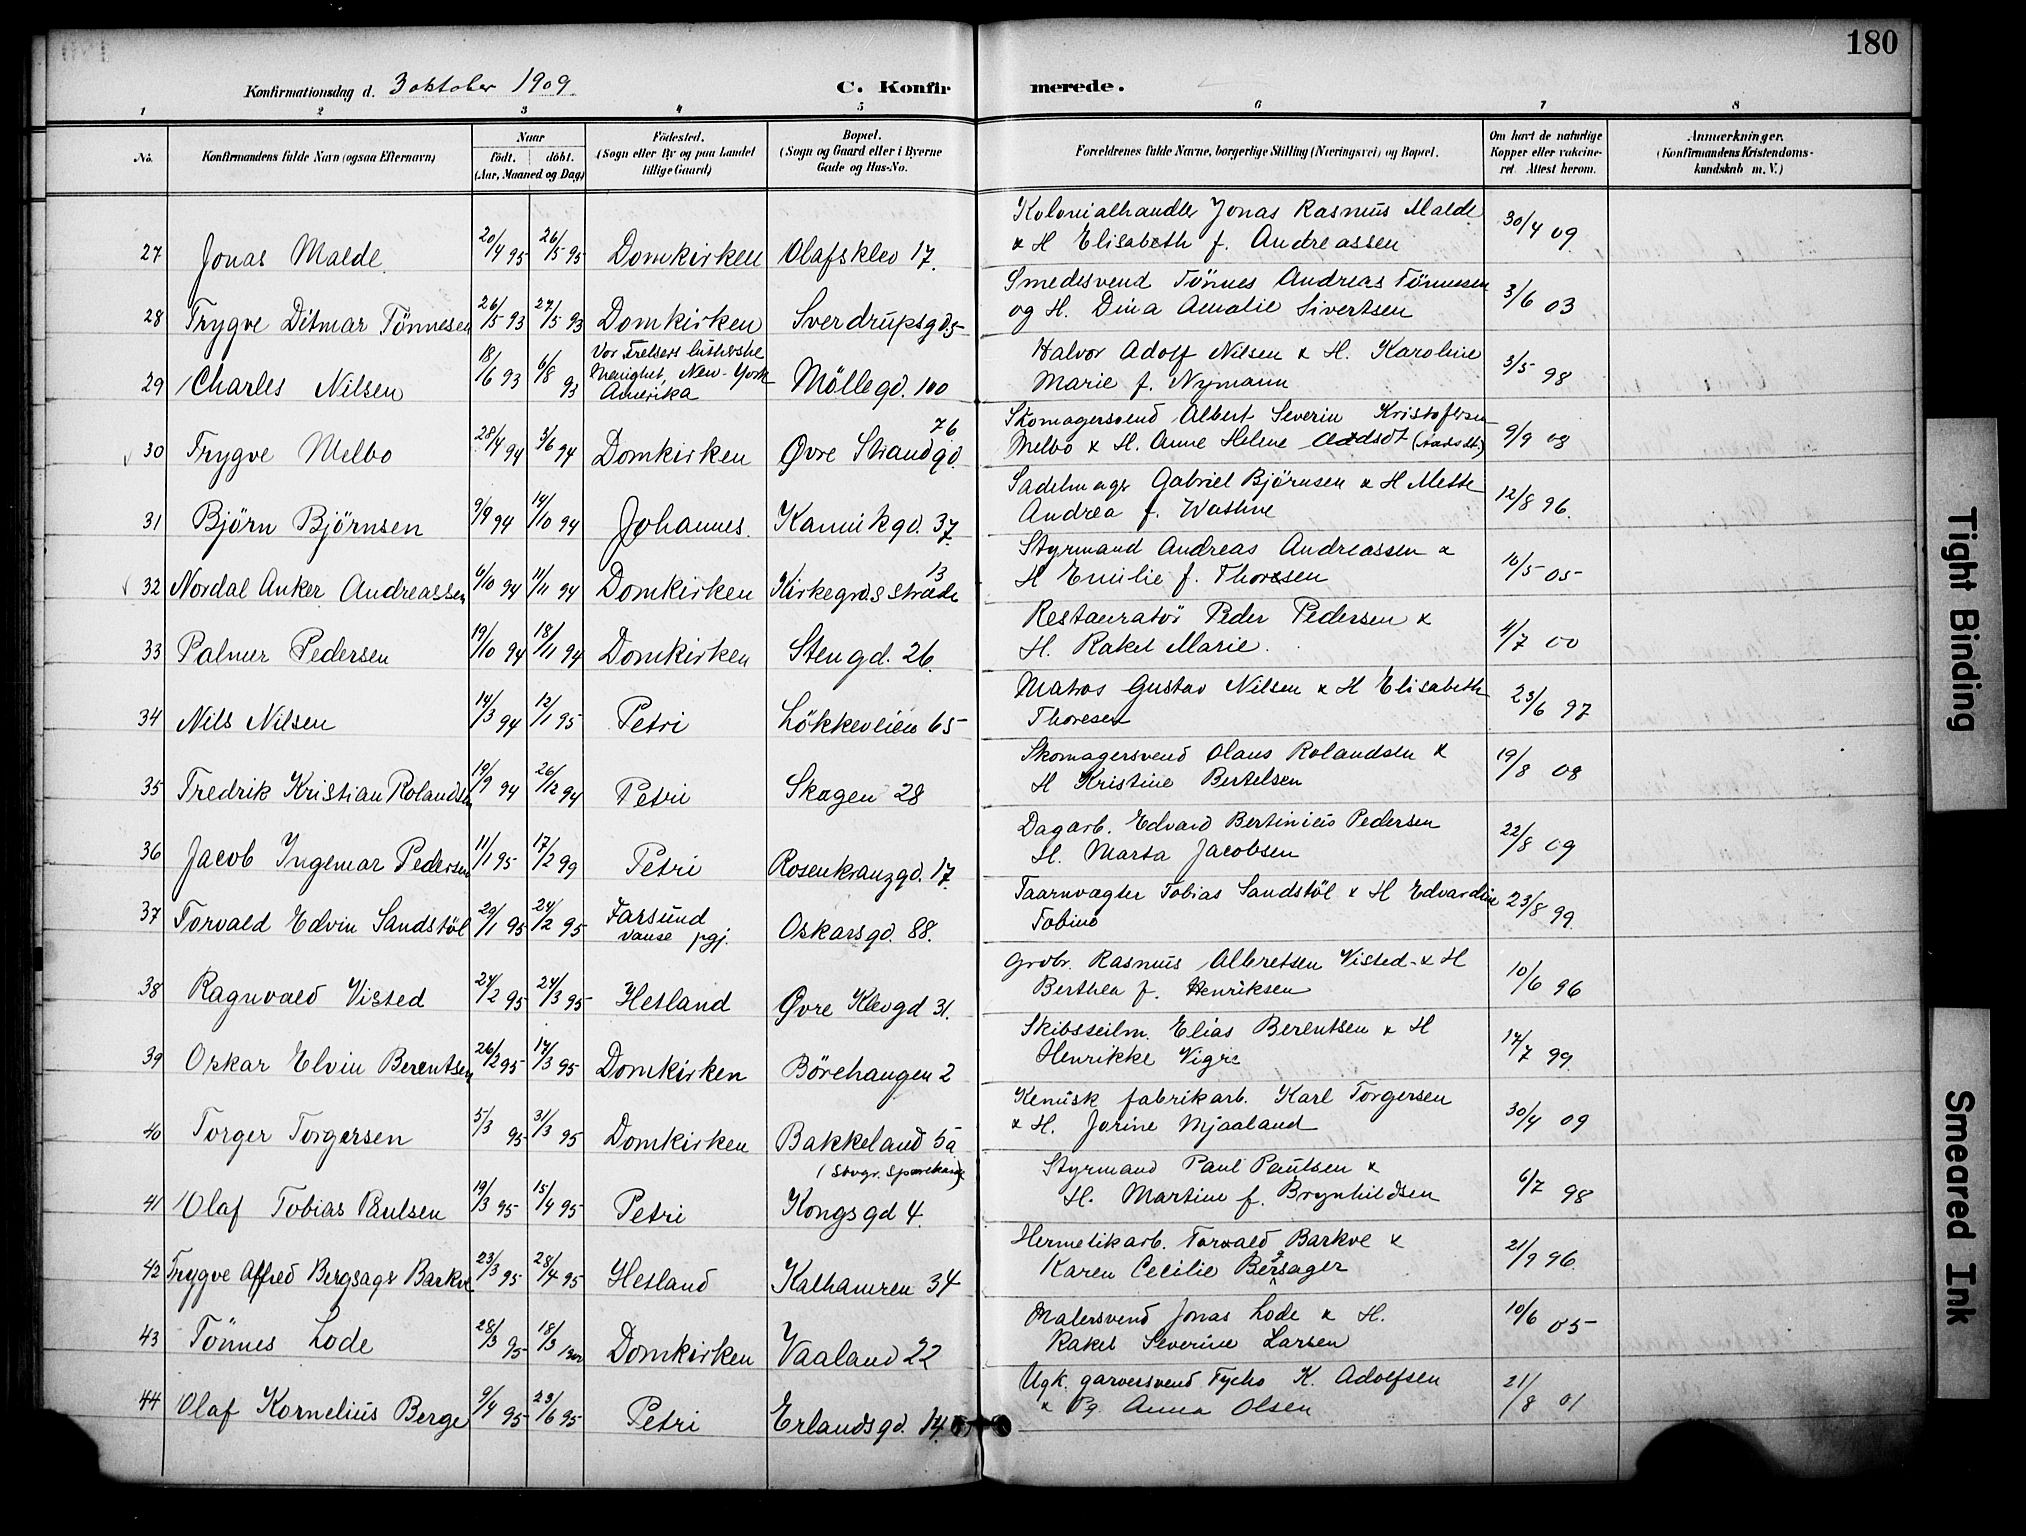 180
Konfirmationsdag d. 3 oktober 1909.
C. Konfirmerede.
1 2 3 4 5 6 7 8
No. Konfirmandens fulde Navn (ogsaa Efternavn) Naar født. døbt. (Aar, Maaned og Dag) Fødested. (Sogn eller By og paa Landet tillige Gaard) Bopæl. (Sogn og Gaard eller i Byerne Gade og Hus-No. Forældrenes fulde Navne, borgerlige Stilling (Næringsvei) og Bopæl. Om havt de naturlige Kopper eller vakcineret. Attest herom. Anmærkninger. (Konfirmandens Kristendomskundskab m. V.)
27 Jonas Malde 20/4 95 26/5 95 Domkirken Olafsklev 17. Kolonialhandler Jonas Rasmus Malde
x H Elisabeth f. Andreassen 30/4 09.
28 Trygve Ditmar Tönnesen 26/5 93 27/5 93 Domkirken Sverdrupsgd 5 Smedesvend Tönnes Andreas Tönnesen
og H. Dina Amalie Sivertsen 3/6 03
29 Charles Nilsen 18/6 93 6/8 93 Vor Frelsers lutherske
Menighet, New-York
Amerika Möllegd. 100 Halvor Adolf Nilsen x H. Karoline
Marie f. Nymann 3/5 98
30 Trygve Melbo 28/4 94 3/6 94 Domkirken Øvre Strandgd. 76 Skomagersvend Albert Severin Kristofersen
Melbo x H. Anne Helene 9/9 08
31 Björn Björnsen 9/9 94 14/10 94 Johannes. Kannikgd. 37. Sadelmager Gabriel Björnsen x H Mette
Andrea f. Wathne 12/8 96.
32 Nordal Anker Andreassen 6/10 94 11/11 94 Domkirken Kirkegrds stræde 13 Styrmand Andreas Andreassen x
H Emilie f. Thorsen 10/5 05
33 Palmer Pedersen 19/10 94 18/11 94 Domkirken Stengd. 26. Restauratör Peder Pedersen x
H. Rakel Marie. 4/7 00
34 Nils Nilsen 14/3 94 12/1 95 Petri Lökkeveien 65 Matros Gustav Nilsen x H Elisabeth
Thoresen 23/6 97
35 Fredrik Kristian Rolandsen 19/9 94 26/12 94 Petri Skagen 28 Skomagersvend Olaus Rolandsen x
H Kristine Bertelsen 19/8 08
36 Jacob Ingemar Pedersen 11/1 95 17/2 99 Petri Rosenkranzgd. 17. Dagarb. Edvard Bertinius Pedersen
H. Marta Jacobsen 22/8 09
37 Torvald Edvin Sandstöl 29/1 95 24/2 95 Farsund
Vanse pgj. Oskarsgd. 88. Taarnvagter Tobias Sandstöl x H Edvardine
23/8 99.
38 Ragnvald Visted 24/2 95 24/3 95 Hetland Øvre Klevgd 31. Grovbr. Rasmus Albretsen Visted x H
Berthea f. Henriksen 10/6 96
39 Oskar Elvin Berentsen 26/2 95 17/3 95 Domkirken Börehaugen 2 Skibsseilm. Elias Berentsen x H
Henrikke Vigre 17/7 99.
40 Torger Torgersen 5/3 95 31/3 95 Domkirken Bakkeland 5a Kemisk fabrikarb. Karl Torgersen
x H. Jorine Mjaaland 30/4 09
41 Olaf Tobias Paulsen 19/3 95 15/4 95 Petri (Stvgr. Sparekasse)
Kongsgd 4. Styrmand Paul Paulsen x
H. Martine f. Brynhildsen 6/7 98
42 Trygve Alfred Bergsager Barkve 23/3 95 28/4 95 Hetland Kalhamren 34 Hermetikarb. Torvald Barkve x
Karen Cecilie Bergsager 21/9 96.
43 Tönnes Lode 28/3 95 18/3 1900 Domkirken Vaaland 22 Malersvend Jonas Lode x H.
Rakel Severine Larsen 10/6 05
44 Olaf Kornelius Berge 9/4 95 23/6 95 Petri Erlandsgd. 14. Ugk. garversvend Tycho K. Adolfsen
x Pg. Anna Olsen 21/8 01
Tight Binding
Smeared Ink